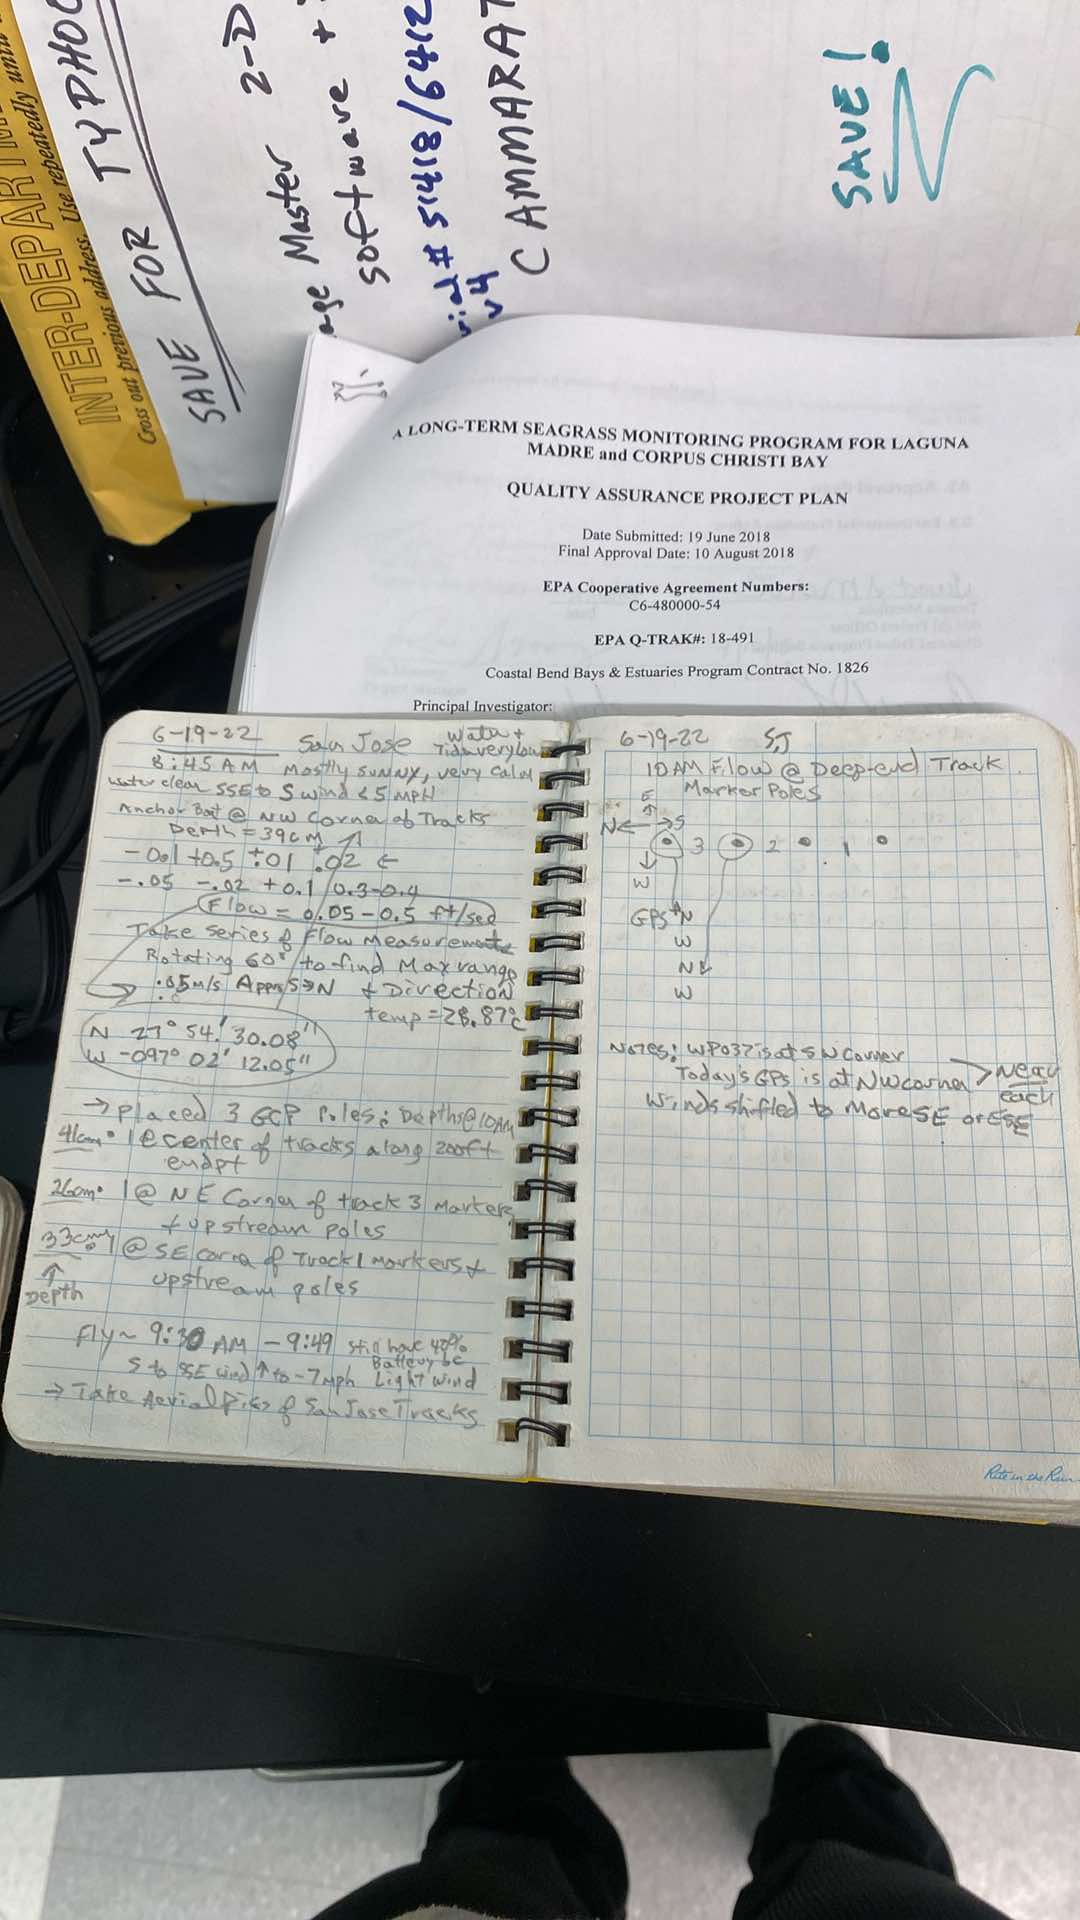 INTER-DEPARTM
Cross out previous address. Use repeatedly until
SAVE FOR TYPHO
Master 2-D
software +
# 51418/6412
v4
CAMMARAT
SAVE!
A LONG-TERM SEAGRASS MONITORING PROGRAM FOR LAGUNA
MADRE and CORPUS CHRISTI BAY
QUALITY ASSURANCE PROJECT PLAN
Date Submitted: 19 June 2018
Final Approval Date: 10 August 2018
EPA Cooperative Agreement Numbers:
C6-480000-54
EPA Q-TRAK#: 18-491
Coastal Bend Bays & Estuaries Program Contract No. 1826
Principal Investigator:
6-19-22 San Jose Water +
Tide very low
8:45 AM Mostly sunny, very calm
water clear SSE to S wind < 5 MPH
Anchor Boat @ NW Corner of Tracks
Depth = 39cm
-0.1 +0.5 ÷.01 ÷.02 ←
-.05 -.02 +0.1 0.3-0.4
Flow = 0.05-0.5 ft/sec
Take series of Flow Measurements
Rotating 60° to find Max range
.05m/s Approx S→N + Direction
temp = 28.87°C
N 27° 54' 30.08"
W -097° 02' 12.05"
→ placed 3 GCP Poles: Depths @ 10AM
41cm • 1 @ center of tracks along 200ft
endpt
26cm • 1 @ NE Corner of track 3 Markers
+ upstream poles
33cm • 1 @ SE corner of Track 1 Markers +
upstream poles
↑
Depth
Fly ~ 9:30 AM - 9:49 still have 40%
Battery bc
S to SSE wind ↑ to ~7mph Light wind
→ Take Aerial Pics of San Jose Tracks
6-19-22 SJ
10 AM Flow @ Deep-end Track
Marker Poles
E
N ← → S
3 2 1
W
GPS N
W
N
W
Notes: WP037 is at SW corner
Today's GPS is at NW corner > Near
each
Winds shifted to More SE or ESE
Rite in the Rain